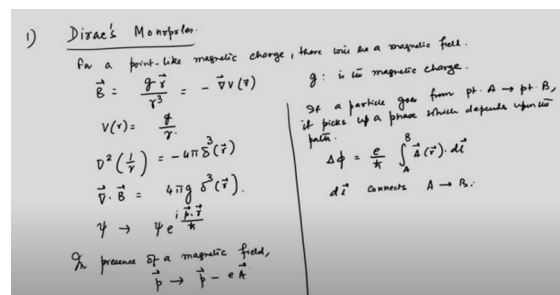 1) Dirac's Monopoles.
For a point-like magnetic charge, there will be a magnetic field.
B⃗ = g r⃗ / r³ = - ∇⃗ V(r)
V(r) = g / r.
∇² (1/r) = -4π δ³(r⃗)
∇⃗ · B⃗ = 4πg δ³(r⃗).
ψ → ψ e^{i p⃗·r⃗ / ħ}
In presence of a magnetic field,
p⃗ → p⃗ - e A⃗
g : is the magnetic charge.
If a particle goes from pt. A → pt. B,
it picks up a phase which depends upon the
path.
Δϕ = e/ħ ∫_A^B A⃗(r⃗) · dl⃗
dl⃗ connects A → B.